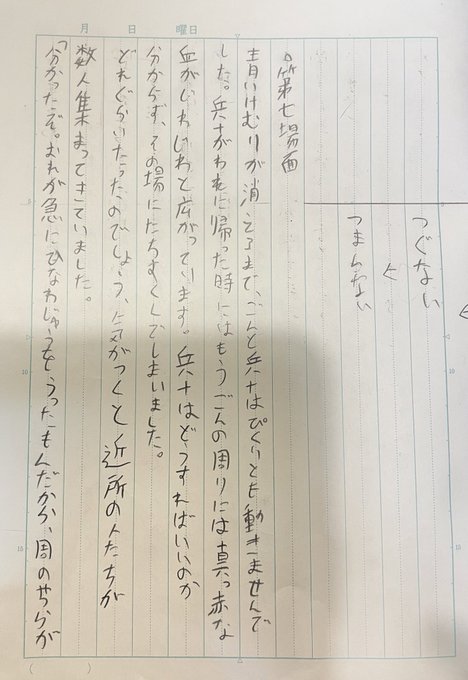 月 日 曜日
つぐない
つまんない
○第七場面
青いけむりが消えるまで、ごんと兵十はぴくりとも動きませんで
した。兵十がわれに帰った時にはもうごんの周りには真っ赤な
血がじわじわと広がっています。兵十はどうすればいいのか
分からず、その場にたちすくんでしまいました。
どれぐらいたったのでしょう、気がつくと近所の人たちが
数人集まってきていました。
「分かったぞ。おれが急にひなわじゅうをうったもんだから、周のやつらが
5
10
15
10
15
( )